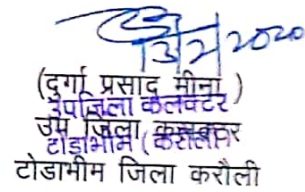 13/2/2020
(दुर्गा प्रसाद मीना)
उपजिला कलेक्टर
उप जिला कलक्टर
टोडाभीम (करौली)
टोडाभीम जिला करौली